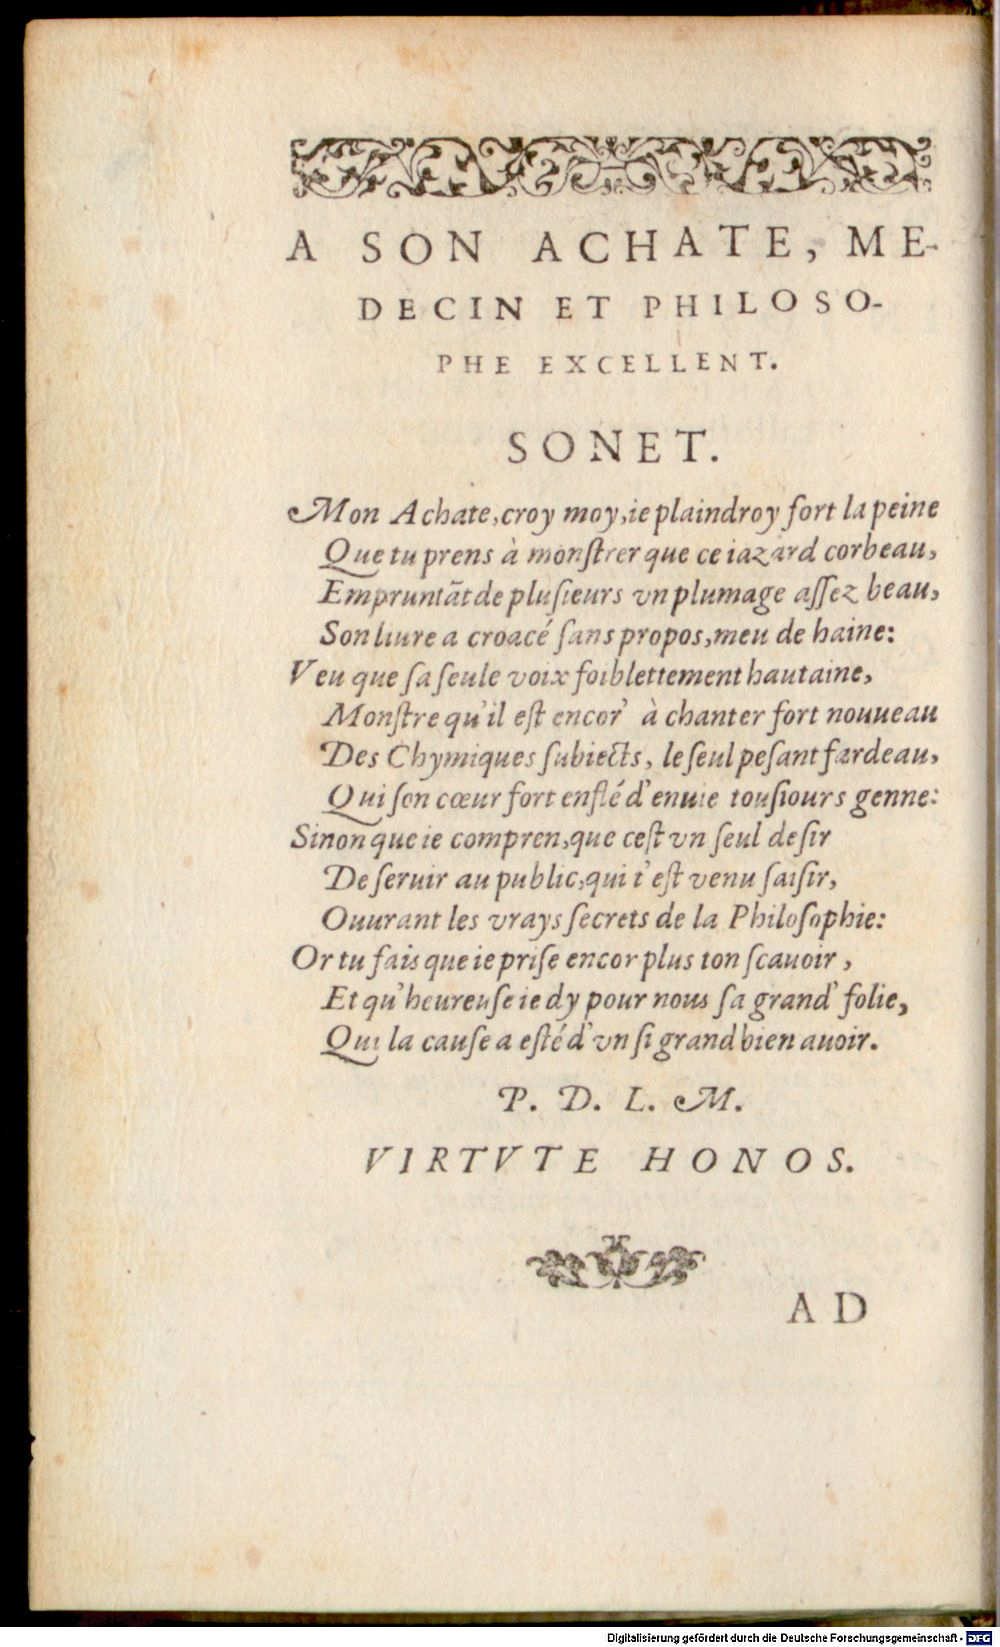 A SON ACHATE, ME-
DECIN ET PHILOSO-
PHE EXCELLENT.
SONET.
Mon Achate, croy moy, ie plaindroy fort la peine
Que tu prens à monſtrer que ce iazard corbeau,
Empruntãt de pluſieurs vn plumage aſſez beau,
Son liure a croacé ſans propos, meu de haine:
Veu que ſa ſeule voix foiblettement hautaine,
Monſtre qu'il eſt encor' à chanter fort nouueau
Des Chymiques ſubiects, le ſeul peſant fardeau,
Qui ſon cœur fort enflé d'enuie touſiours genne:
Sinon que ie compren, que ceſt vn ſeul deſir
De ſeruir au public, qui t'eſt venu ſaiſir,
Ouurant les vrays ſecrets de la Philoſophie:
Or tu fais que ie priſe encor plus ton ſcauoir,
Et qu'heureuſe ie dy pour nous ſa grand' folie,
Qui la cauſe a eſté d'vn ſi grand bien auoir.
P. D. L. M.
VIRTVTE HONOS.
AD
Digitalisierung gefördert durch die Deutsche Forschungsgemeinschaft - DFG